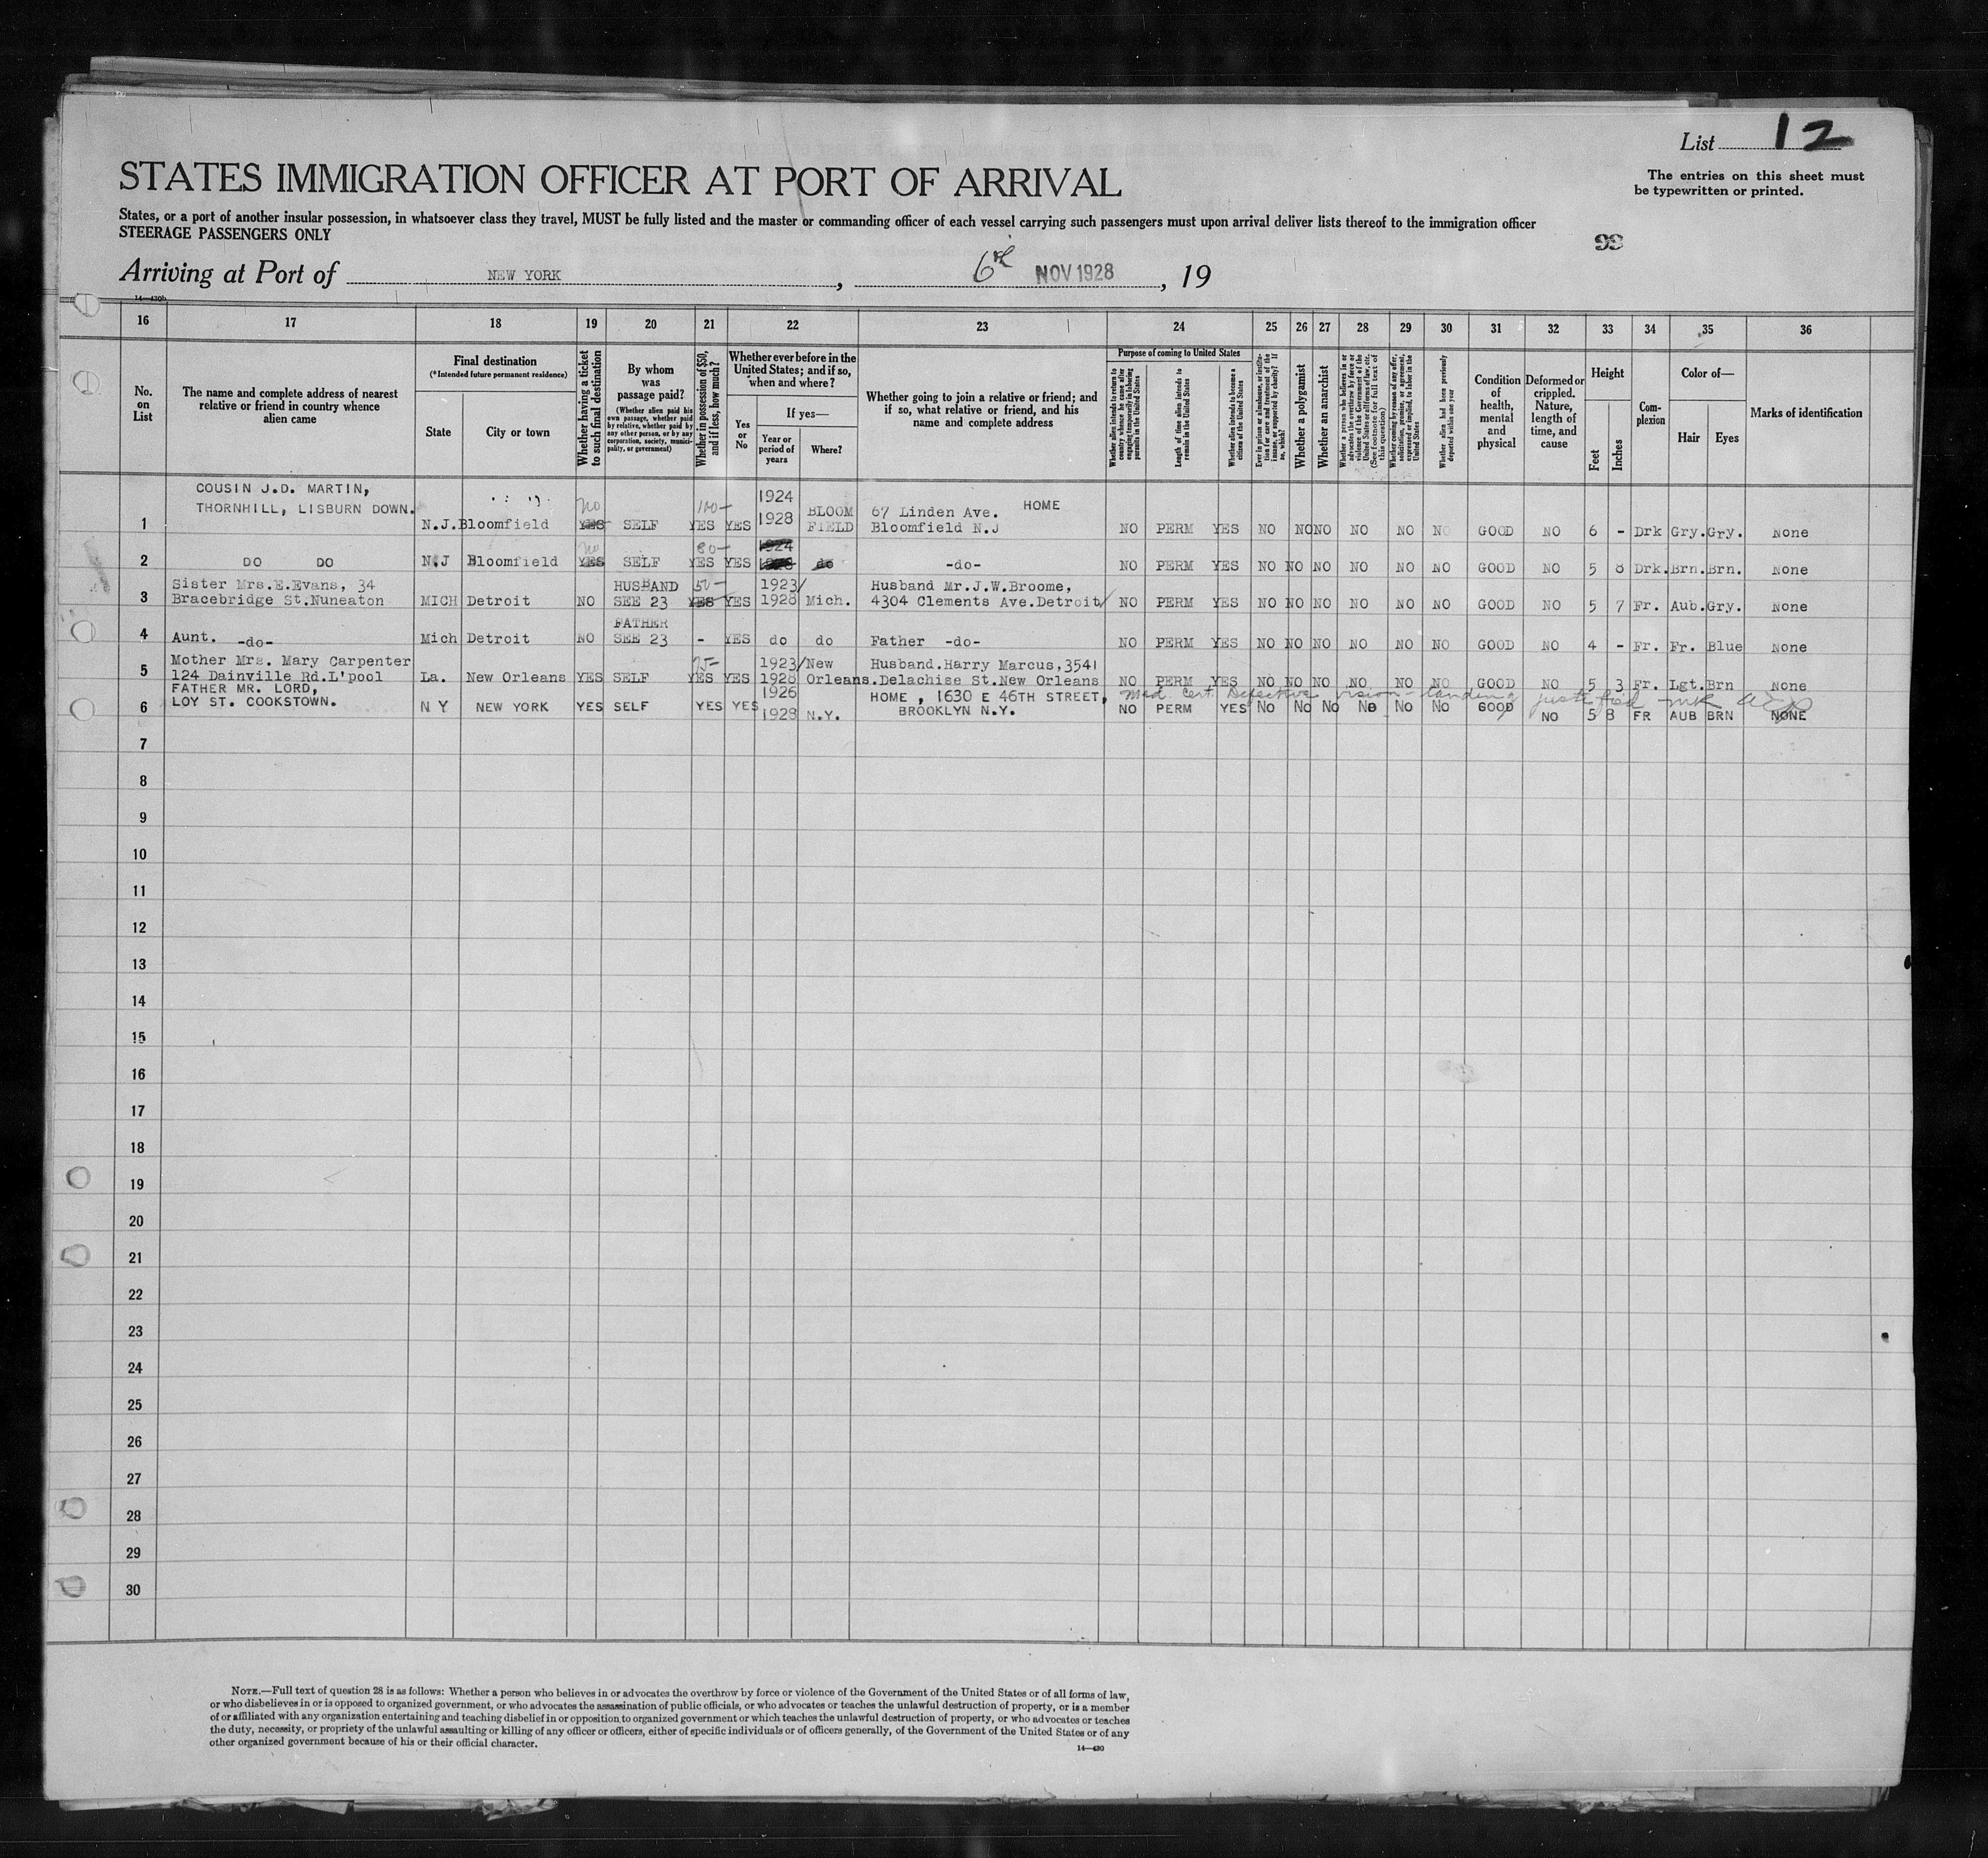 List 12
STATES IMMIGRATION OFFICER AT PORT OF ARRIVAL
The entries on this sheet must
be typewritten or printed.
States, or a port of another insular possession, in whatsoever class they travel, MUST be fully listed and the master or commanding officer of each vessel carrying such passengers must upon arrival deliver lists thereof to the immigration officer
STEERAGE PASSENGERS ONLY
Arriving at Port of NEW YORK, 6 NOV 1928, 19
14—430b
16 17 18 19 20 21 22 23 24 25 26 27 28 29 30 31 32 33 34 35 36
No. on List
The name and complete address of nearest relative or friend in country whence alien came
Final destination
(*Intended future permanent residence)
State
City or town
Whether having a ticket to such final destination
By whom was passage paid?
(Whether alien paid his own passage, whether paid by relative, whether paid by any other person, or by any corporation, society, municipality, or government)
Whether in possession of $50, and if less, how much?
Whether ever before in the United States; and if so, when and where?
Yes or No
If yes—
Year or period of years
Where?
Whether going to join a relative or friend; and if so, what relative or friend, and his name and complete address
Purpose of coming to United States
Whether alien intends to return to country whence he came after engaging temporarily in laboring pursuits in the United States
Length of time alien intends to remain in the United States
Whether alien intends to become a citizen of the United States
Ever in prison or almshouse, or institution for care and treatment of the insane, or supported by charity? If so, which?
Whether a polygamist
Whether an anarchist
Whether a person who believes in or advocates the overthrow by force or violence of the Government of the United States or all forms of law, etc. (See footnote for full text of this question)
Whether coming by reason of any offer, solicitation, promise, or agreement, expressed or implied, to labor in the United States
Whether alien had been previously deported within one year
Condition of health, mental and physical
Deformed or crippled. Nature, length of time, and cause
Height
Feet
Inches
Complexion
Color of—
Hair
Eyes
Marks of identification
COUSIN J.D. MARTIN,
THORNHILL, LISBURN DOWN.
1 N.J. Bloomfield no YES SELF 100— YES YES 1924 1928 BLOOM FIELD 67 Linden Ave. HOME Bloomfield N.J NO PERM YES NO NO NO NO NO NO GOOD NO 6 - Drk Gry. Gry. None
2 DO DO N.J Bloomfield no YES SELF 80— YES YES 1924 do -do- NO PERM YES NO NO NO NO NO NO GOOD NO 5 8 Drk. Brn. Brn. None
3 Sister Mrs.E.Evans, 34 Bracebridge St.Nuneaton MICH Detroit NO HUSBAND SEE 23 50— YES YES 1923/ 1928 Mich. Husband Mr.J.W.Broome, 4304 Clements Ave.Detroit NO PERM YES NO NO NO NO NO NO GOOD NO 5 7 Fr. Aub. Gry. None
4 Aunt. -do- Mich Detroit NO FATHER SEE 23 - YES do do Father -do- NO PERM YES NO NO NO NO NO NO GOOD NO 4 - Fr. Fr. Blue None
5 Mother Mrs. Mary Carpenter 124 Dainville Rd.L'pool La. New Orleans YES SELF 75— YES YES 1923/ 1928 New Orleans. Husband.Harry Marcus,3541 Delachise St.New Orleans NO PERM YES NO NO NO NO NO NO GOOD NO 5 3 Fr. Lgt. Brn None
Med. Cert. Defective vision - landing justified
6 FATHER MR. LORD, LOY ST. COOKSTOWN. N Y NEW YORK YES SELF YES YES 1926 1928 N.Y. HOME , 1630 E 46TH STREET, BROOKLYN N.Y. NO PERM YES No No No No No No GOOD NO 5 8 FR AUB BRN NONE
7
8
9
10
11
12
13
14
15
16
17
18
19
20
21
22
23
24
25
26
27
28
29
30
NOTE.—Full text of question 28 is as follows: Whether a person who believes in or advocates the overthrow by force or violence of the Government of the United States or of all forms of law,
or who disbelieves in or is opposed to organized government, or who advocates the assassination of public officials, or who advocates or teaches the unlawful destruction of property, or is a member
of or affiliated with any organization entertaining and teaching disbelief in or opposition to organized government or which teaches the unlawful destruction of property, or who advocates or teaches
the duty, necessity, or propriety of the unlawful assaulting or killing of any officer or officers, either of specific individuals or of officers generally, of the Government of the United States or of any
other organized government because of his or their official character.
14—430